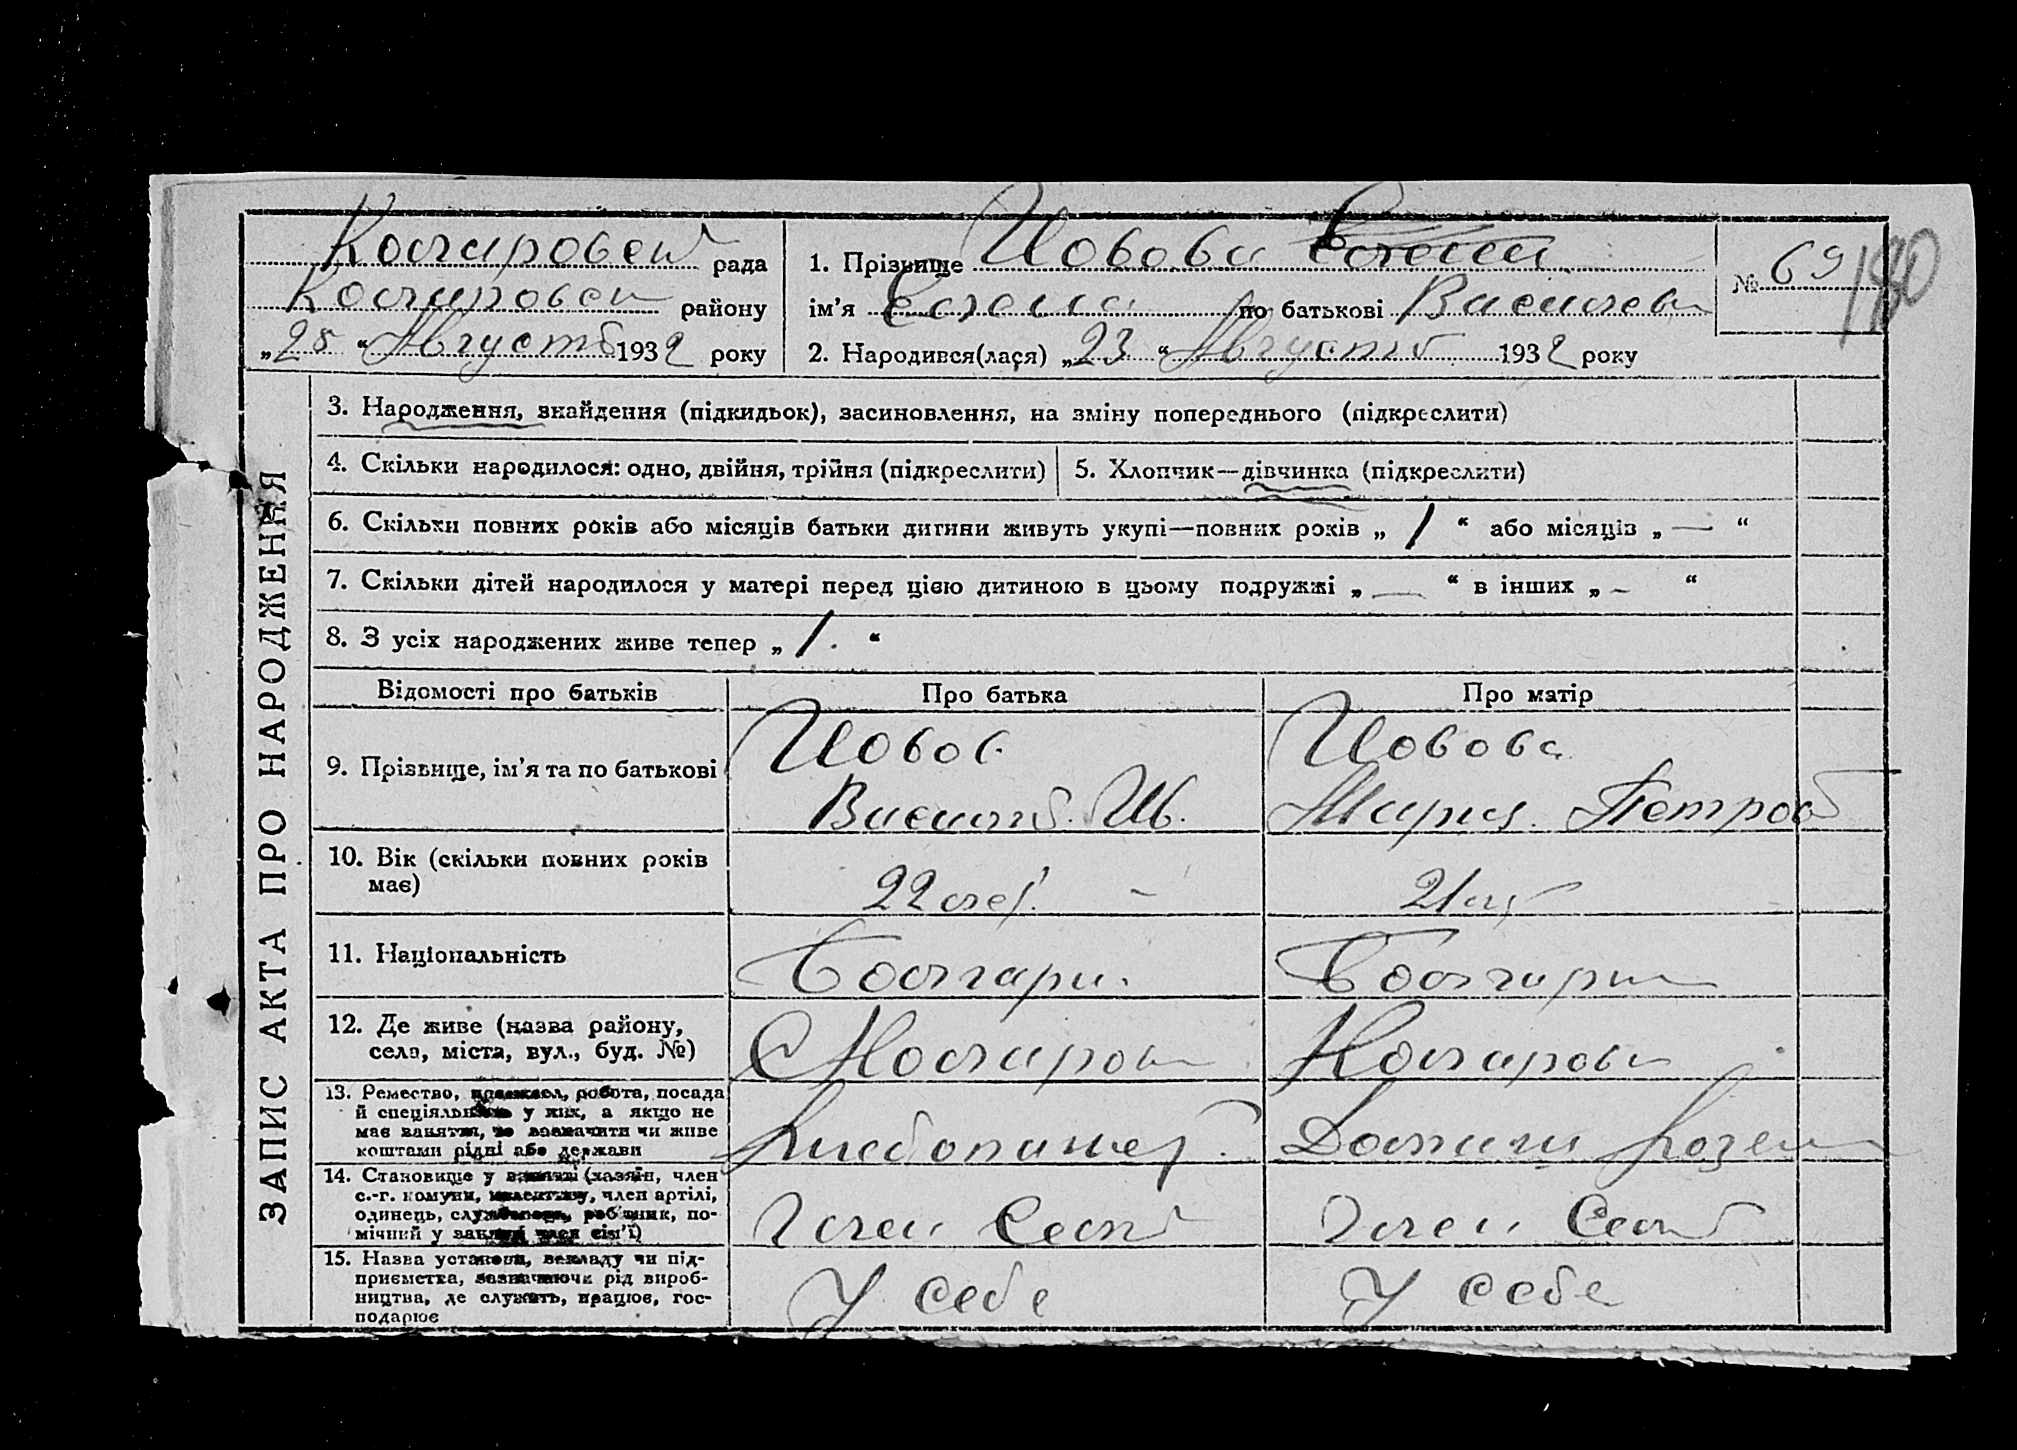 Коларовской рада
Коларовск району
„25“ Август 1932 року
1. Прізвище Иовова Елена
ім’я Елена по батькові Василев
№ 69
180
2. Народився(лася) „23“ Август 1932 року
ЗАПИС АКТА ПРО НАРОДЖЕННЯ
3. Народження, знайдення (підкидьок), засиновлення, на зміну попереднього (підкреслити)
4. Скільки народилося: одно, двійня, трійня (підкреслити)
5. Хлопчик—дівчинка (підкреслити)
6. Скільки повних років або місяців батьки дитини живуть укупі—повних років „ 1 “ або місяців „ — “
7. Скільки дітей народилося у матері перед цією дитиною в цьому подружжі „ — “ в інших „ – “
8. З усіх народжених живе тепер „ 1. “
Відомості про батьків
Про батька
Про матір
9. Прізвище, ім’я та по батькові
Иовов
Васил. Ив.
Иовова
Мария Петров
10. Вік (скільки повних років
має)
22 лет –
21 л
11. Національність
Болгари.
Болгари
12. Де живе (назва району,
села, міста, вул., буд. №)
Коларов
13. Ремество, робота, посада
й спеціяльн у них, а якщо не
має заняття, то зазначити чи живе
коштами рідні або держави
Хлебопашец.
Домаш хозя
14. Становище у занятті (хазяїн, член
с.-г. комуни, колективу, член артілі,
одинець, службовець, роб'тник, по-
мічний у занятті член сім’ї)
Член Сель
Член Сель
15. Назва установи, закладу чи під-
приємства, зазначаючи рід вироб-
ництва, де служить, працює, гос-
подарює
У себе
У себе